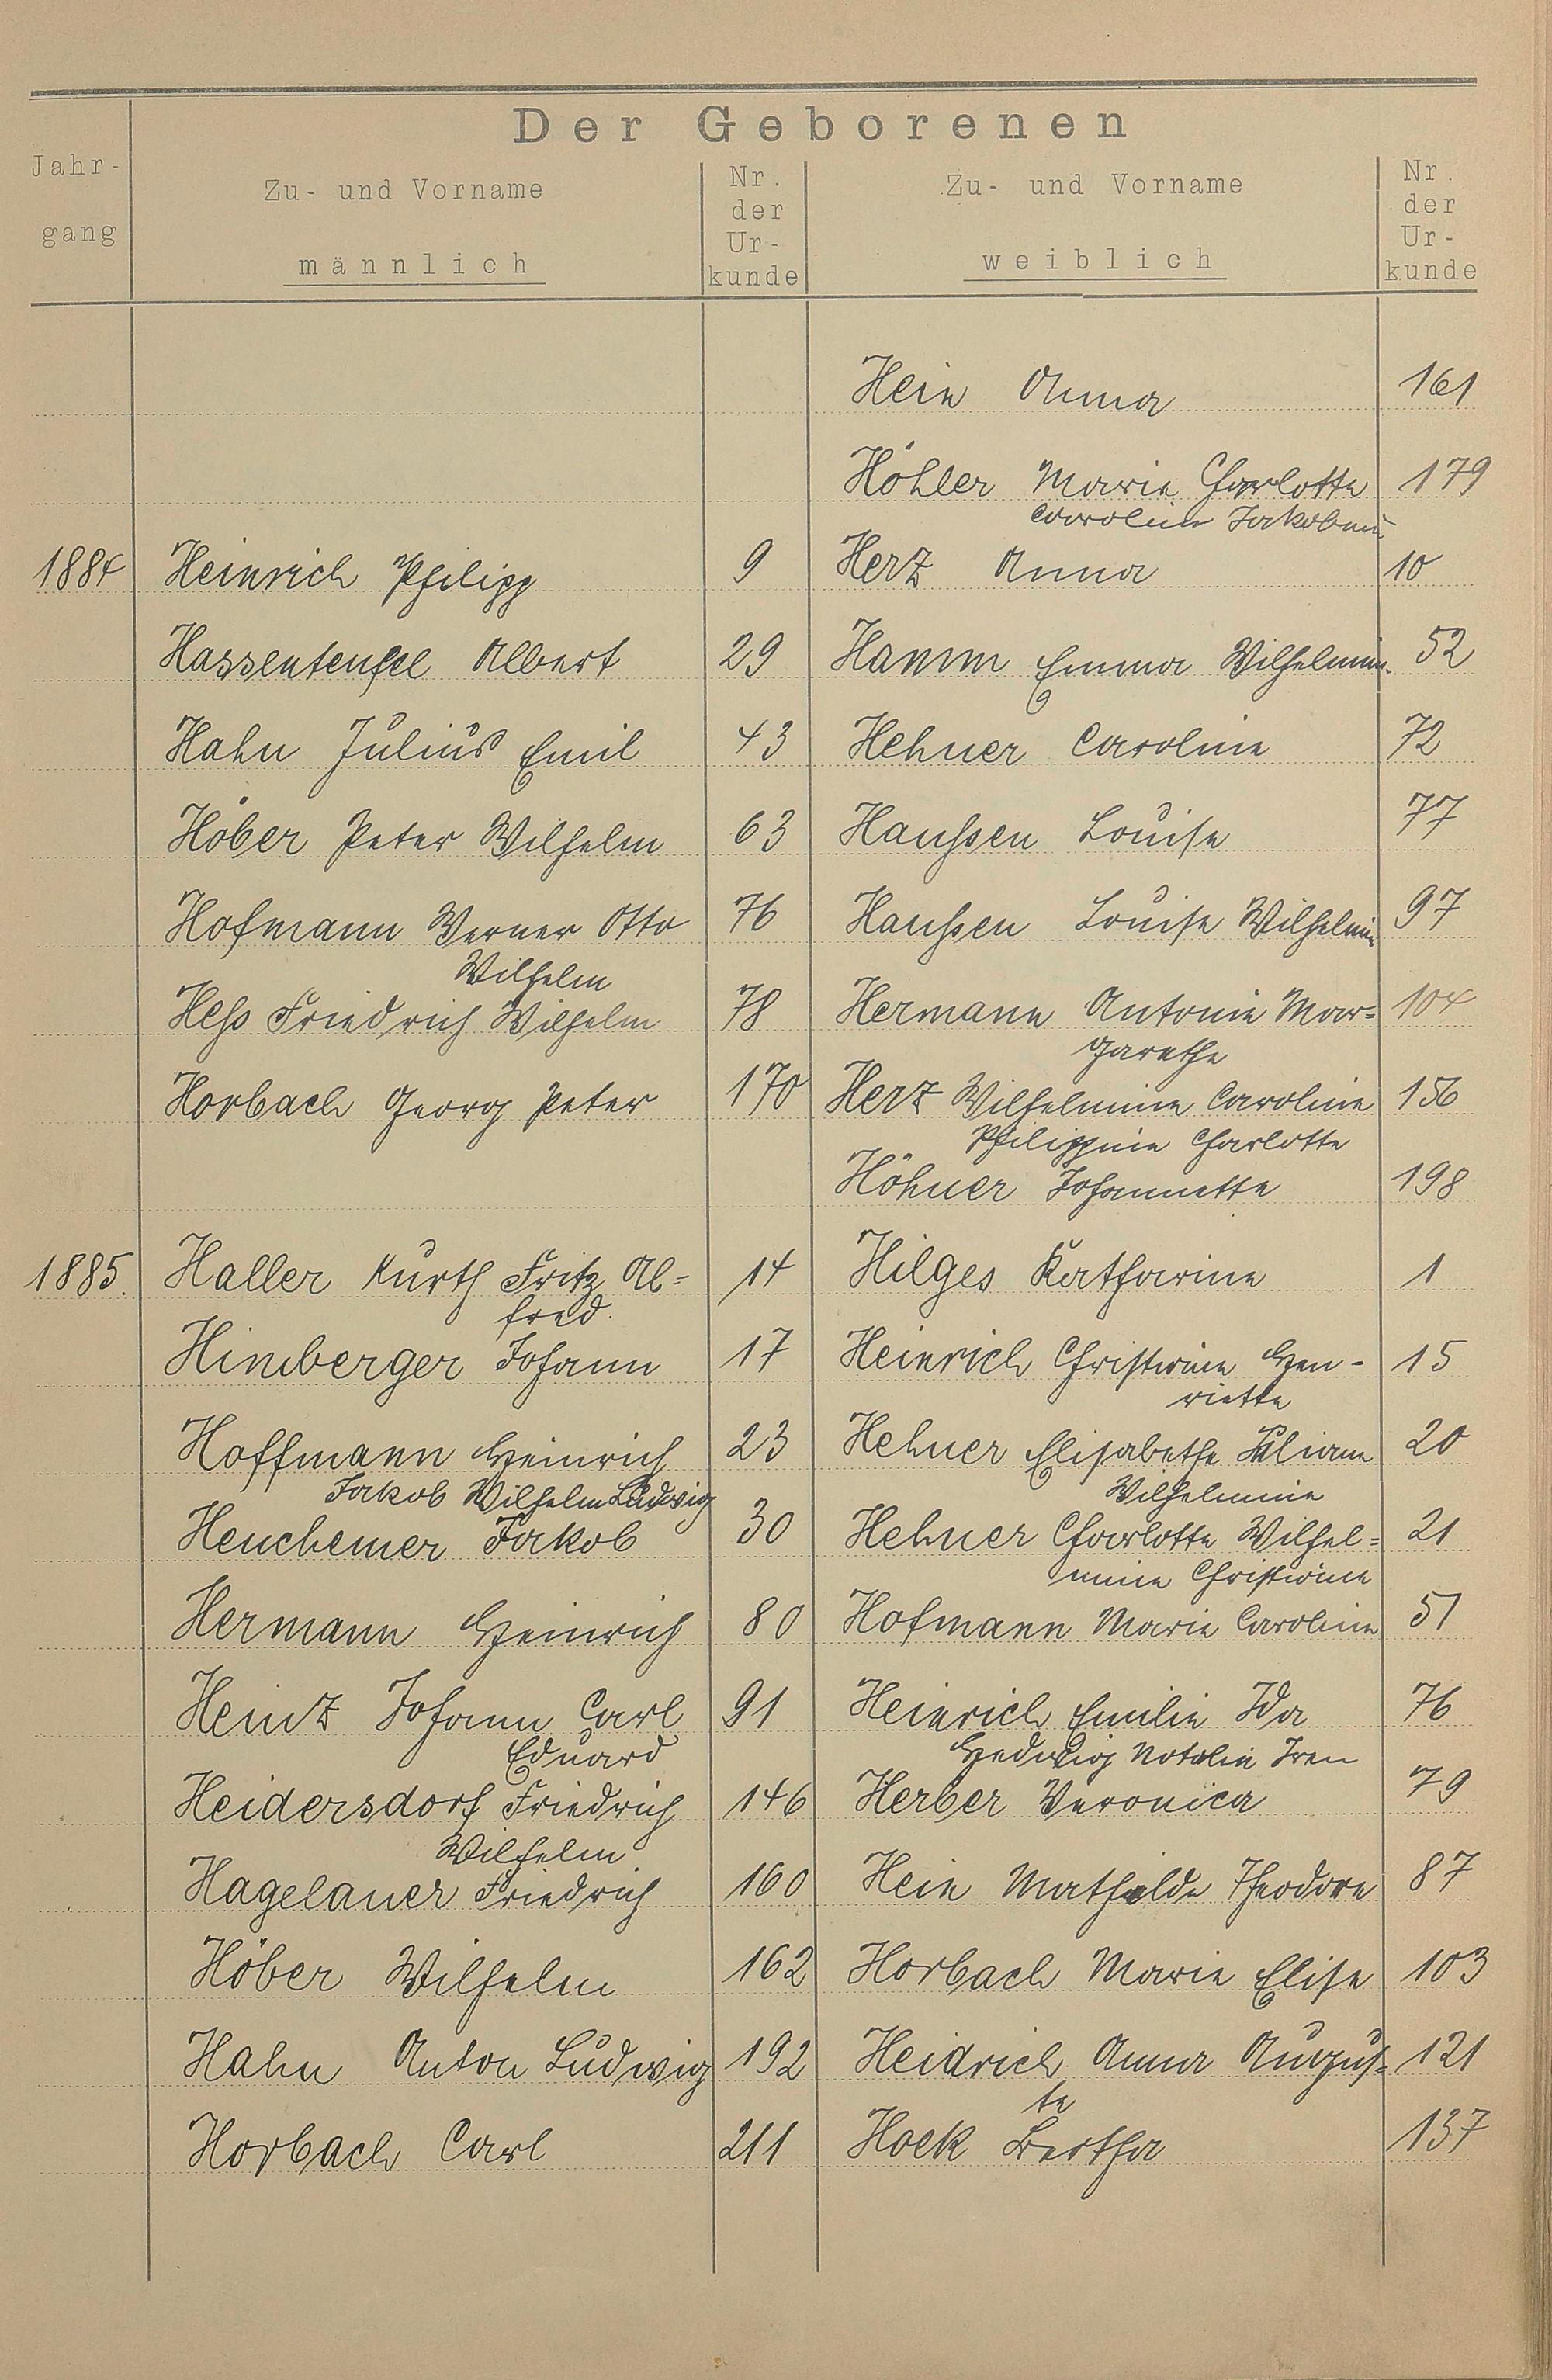 Der Geborenen
Jahr-
gang
Zu- und Vorname
männlich
Nr.
der
Ur-
kunde
Zu- und Vorname
weiblich
Nr.
der
Ur-
kunde
Hein Anna 161
Höhler Marie Charlotte 179
Caroline Jakobine
1884 Heinrich Philipp 9 Herz Anna 10
Hassenteufel Albert 29 Hamm Emma Wilhelmin. 52
Hahn Julius Emil 43 Hehner Caroline 72
Höber Peter Wilhelm 63 Haußen Louise 77
Hofmann Werner Otto 76 Haußen Louise Wilhelmin 97
Wilhelm
Heß Friedrich Wilhelm 78 Hermann Antonie Mar= 104
garethe
Horbach Georg Peter 170 Herz Wilhelmine Caroline 156
Philippine Charlotte
Höhner Johannette 198
1885. Haller Kurth Fritz Al= 14 Hilges Katharine 1
fred.
Himberger Johann 17 Heinrich Christine Hen- 15
riette
Hoffmann Heinrich 23 Hehner Elisabethe Juliane 20
Jakob Wilhelm Ludwig Wilhelmine
Heuchemer Jakob 30 Hehner Charlotte Wilhel= 21
mine Christine
Hermann Heinrich 80 Hofmann Marie Caroline 51
Heinz Johann Carl 91 Heinrich Emilie Ida 76
Eduard Hedwig Natalie Iren
Heidersdorf Friedrich 146 Herber Veronica 79
Wilhelm
Hagelauer Friedrich 160 Hein Mathilde Theodore 87
Höber Wilhelm 162 Horbach Marie Elise 103
Hahn Anton Ludwig 192 Heidrich Anna Augus= 121
te
Horbach Carl 211 Hock Bertha 137